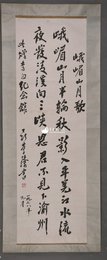 峨嵋山月歌
峨嵋山月半輪秋影入平羌江水流
夜發清溪向三峽思君不見下渝州
李白紀念館